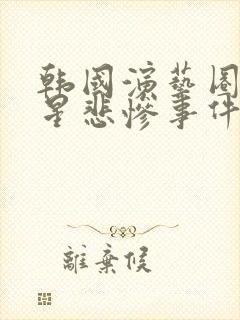 韩國演藝圈
星悲惨事件
離棄候